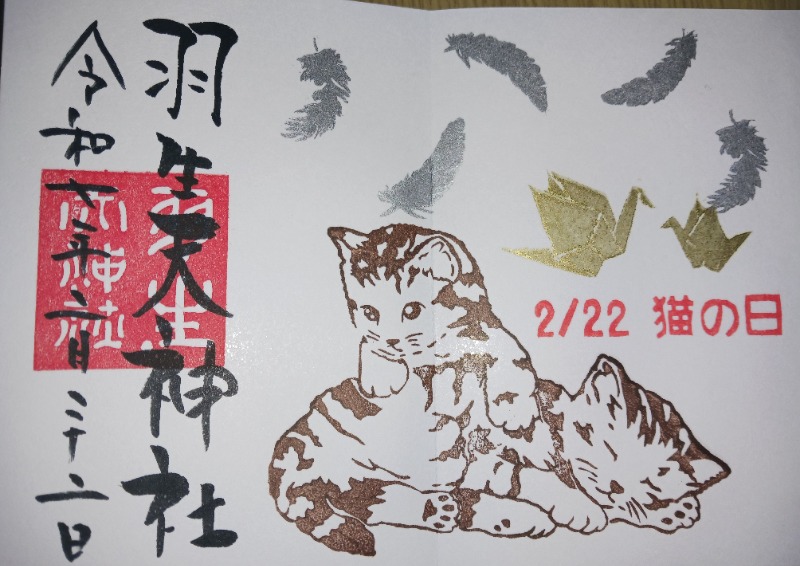 羽生天神社
令和七年二月二十二日
羽生
天神社
2/22 猫の日